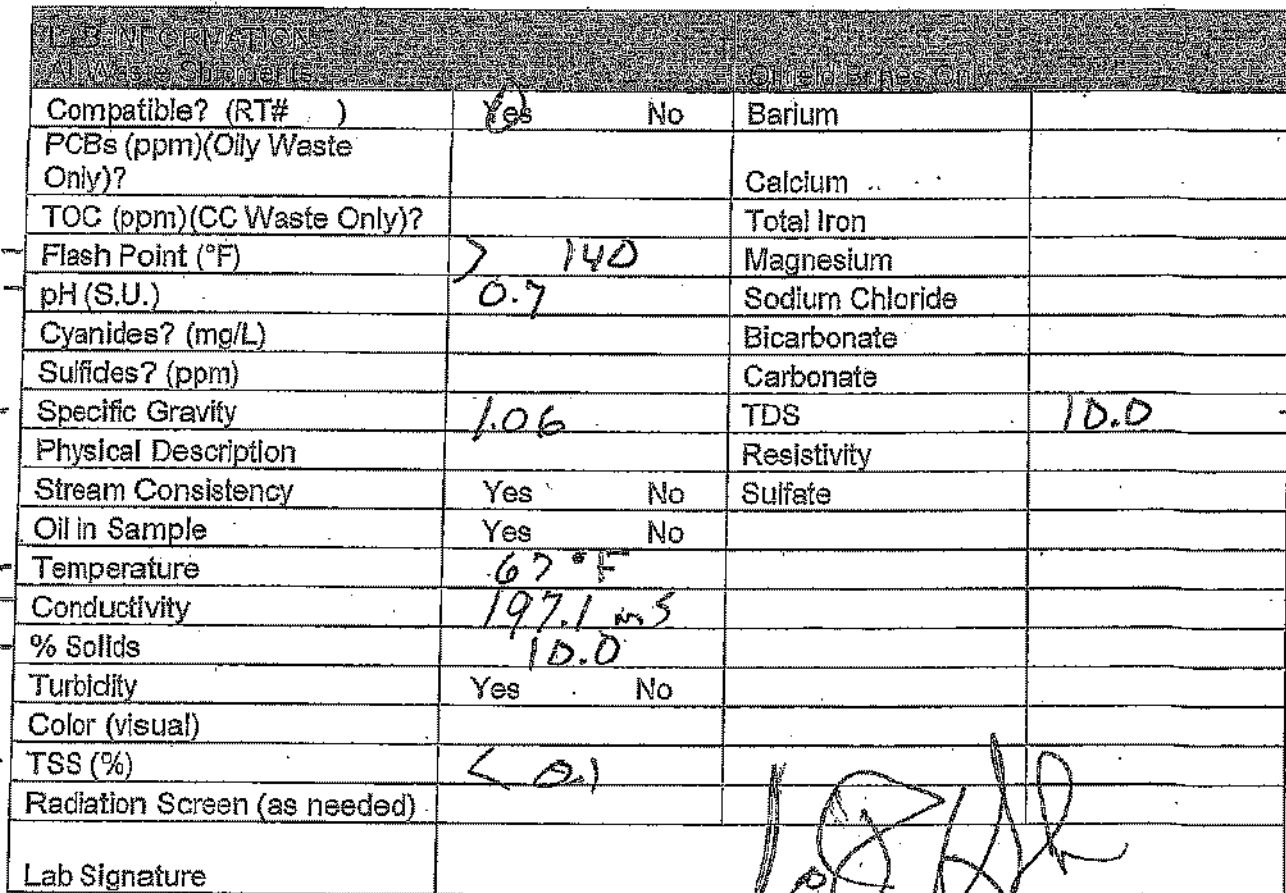 LAB INFORMATION
All Waste Shipments Oilfield Brines Only
Compatible? (RT# ) Yes No Barium
PCBs (ppm)(Oily Waste
Only)? Calcium
TOC (ppm)(CC Waste Only)? Total Iron
Flash Point (°F) > 140 Magnesium
pH (S.U.) 0.7 Sodium Chloride
Cyanides? (mg/L) Bicarbonate
Sulfides? (ppm) Carbonate
Specific Gravity 1.06 TDS 10.0
Physical Description Resistivity
Stream Consistency Yes No Sulfate
Oil in Sample Yes No
Temperature 67 °F
Conductivity 197.1 mS
% Solids 10.0
Turbidity Yes No
Color (visual)
TSS (%) < 0.1
Radiation Screen (as needed)
Lab Signature